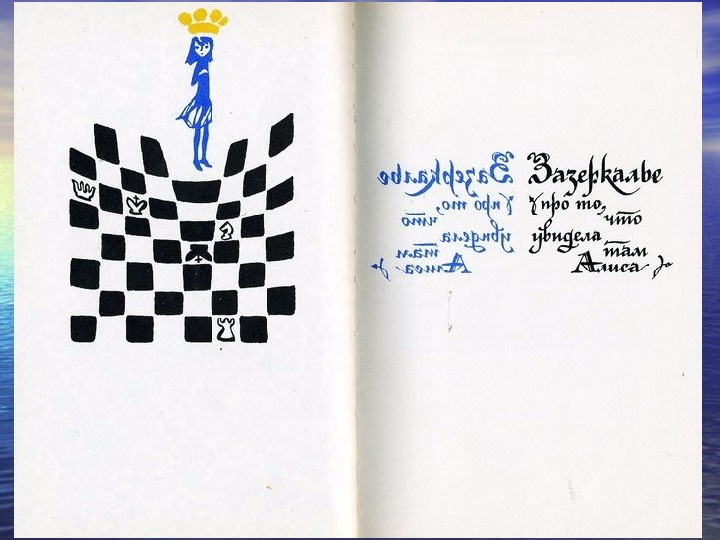 Зазеркалье
(про то,
что
увидела
там
Алиса)
Зазеркалье
(про то,
что
увидела
там
Алиса)